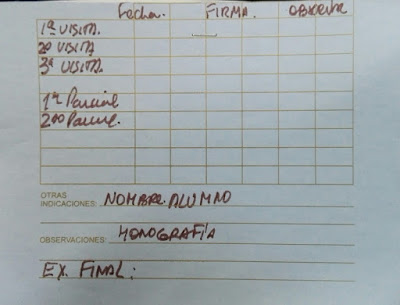 Fecha. FIRMA. OBSERVE
1ª VISITA.
2ª VISITA
3ª VISITA.
1er Parcial
2do Parcial.
OTRAS
INDICACIONES: NOMBRE ALUMNO
OBSERVACIONES: MONOGRAFÍA
EX. FINAL: